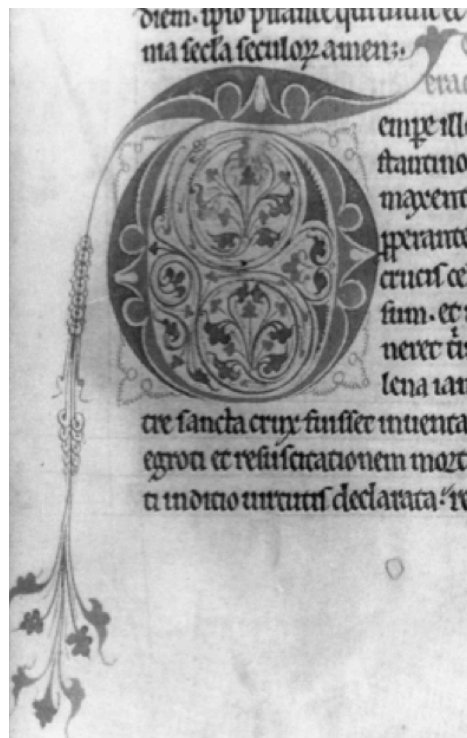 diem. ipso prestante qui uiuit et
ma secła seculoꝝ amen:.
erac
empe ill
stantino
maxent
pperante
crucis ce
sum. et
neret
lena iam
tre sancta crux fuisset inuenta
egroti et resuscitationem mort
ti inditio uirtutis declarata. re